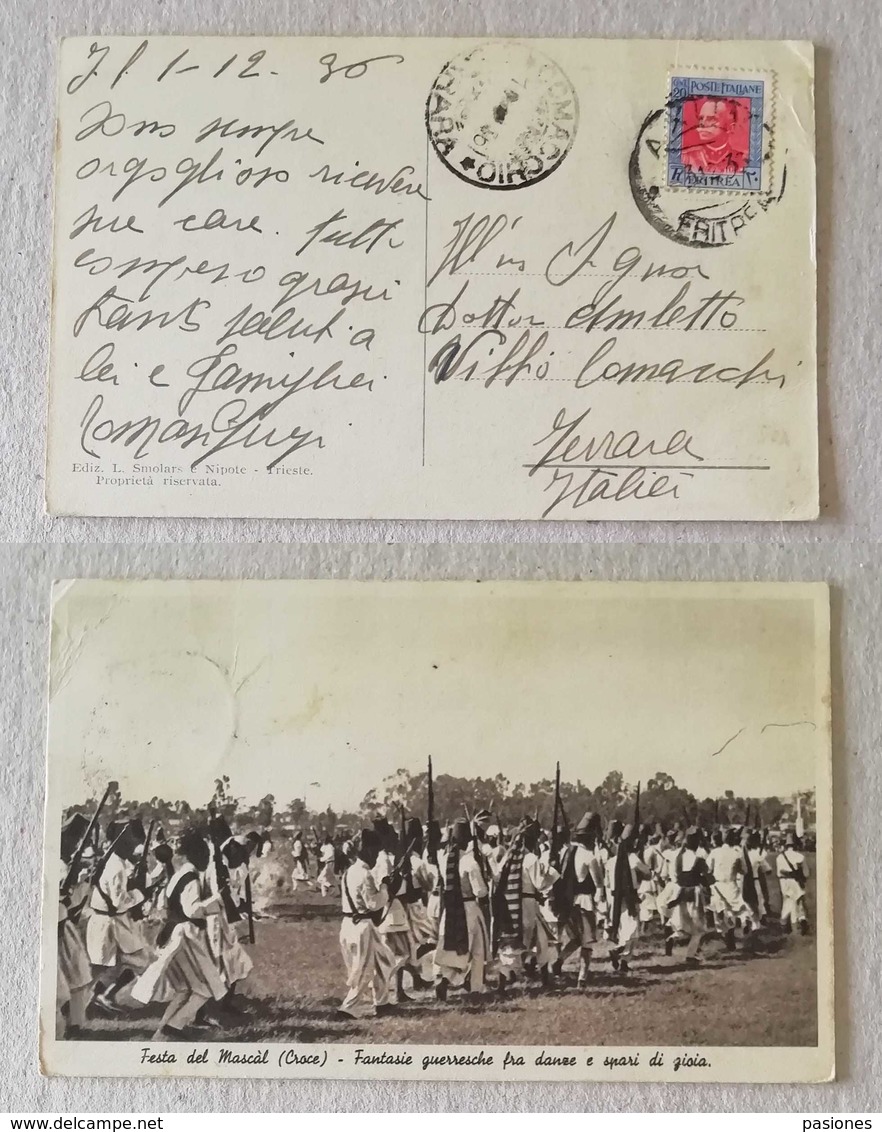 1-12-36
Sono sempre
orgoglioso ricevere
sue care. Tutto
compreso grazie
Tanti saluti a
lei e famiglia
Roman Luigi
Ediz. L. Smolars e Nipote - Trieste.
Proprietà riservata.
COMACCHIO
POSTE ITALIANE
CENT 20
ERITREA
ERITREA
Ill'us Signor
Dottor Amleto
Comacchi
Ferrara
Italia
Festa del Mascàl (Croce) - Fantasie guerresche fra danze e spari di gioia.
pasiones